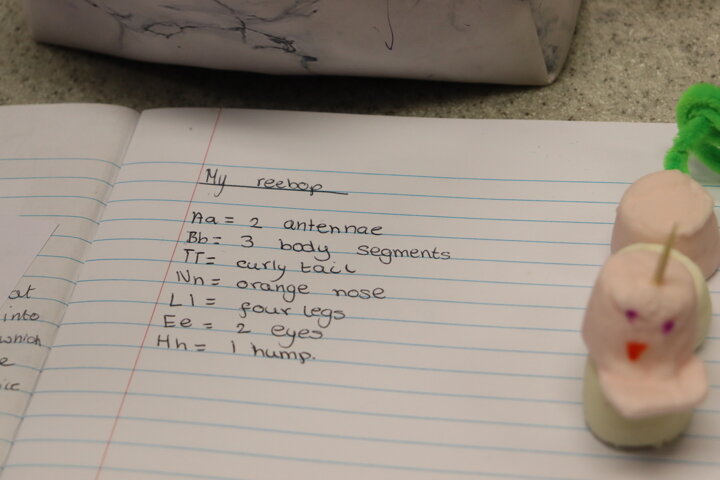 My reebop
Aa = 2 antennae
Bb = 3 body segments
TT = curly tail
Nn = orange nose
Ll = four legs
Ee = 2 eyes
Hh = 1 hump.
at
into
which